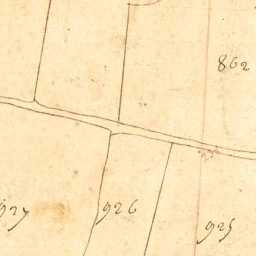 862
927
926
925